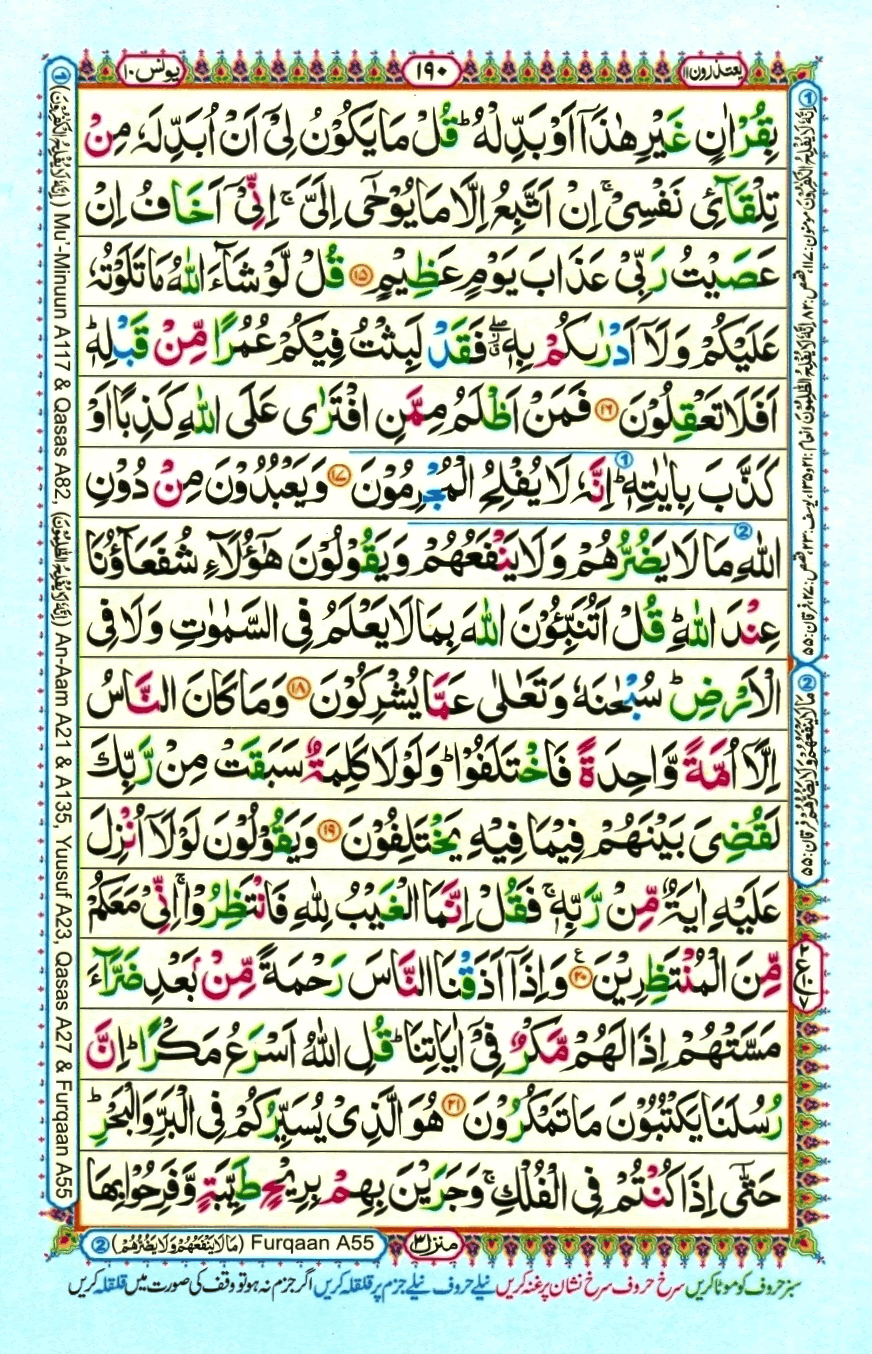 یعتذرون ۱۱
۱۹۰
یونس ۱۰
بِقُرْاٰنٍ غَیْرِ هٰذَاۤ اَوْ بَدِّلْهُ ؕ قُلْ مَا یَكُوْنُ لِیْۤ اَنْ اُبَدِّلَهٗ مِنْ
تِلْقَآئِ نَفْسِیْ ۚ اِنْ اَتَّبِعُ اِلَّا مَا یُوْحٰۤی اِلَیَّ ۚ اِنِّیْۤ اَخَافُ اِنْ
عَصَیْتُ رَبِّیْ عَذَابَ یَوْمٍ عَظِیْمٍ ۝۱۵ قُلْ لَّوْ شَآءَ اللّٰهُ مَا تَلَوْتُهٗ
عَلَیْكُمْ وَ لَاۤ اَدْرٰىكُمْ بِهٖ ۖؗ فَقَدْ لَبِثْتُ فِیْكُمْ عُمُرًا مِّنْ قَبْلِهٖ ؕ
اَفَلَا تَعْقِلُوْنَ ۝۱۶ فَمَنْ اَظْلَمُ مِمَّنِ افْتَرٰی عَلَی اللّٰهِ كَذِبًا اَوْ
كَذَّبَ بِاٰیٰتِهٖ ؕ اِنَّهٗ لَا یُفْلِحُ الْمُجْرِمُوْنَ ۝۱۷ وَ یَعْبُدُوْنَ مِنْ دُوْنِ
اللّٰهِ مَا لَا یَضُرُّهُمْ وَ لَا یَنْفَعُهُمْ وَ یَقُوْلُوْنَ هٰۤؤُلَآءِ شُفَعَآؤُنَا
عِنْدَ اللّٰهِ ؕ قُلْ اَتُنَبِّـُٔوْنَ اللّٰهَ بِمَا لَا یَعْلَمُ فِی السَّمٰوٰتِ وَ لَا فِی
الْاَرْضِ ؕ سُبْحٰنَهٗ وَ تَعٰلٰی عَمَّا یُشْرِكُوْنَ ۝۱۸ وَ مَا كَانَ النَّاسُ
اِلَّاۤ اُمَّةً وَّاحِدَةً فَاخْتَلَفُوْا ؕ وَ لَوْ لَا كَلِمَةٌ سَبَقَتْ مِنْ رَّبِّكَ
لَقُضِیَ بَیْنَهُمْ فِیْمَا فِیْهِ یَخْتَلِفُوْنَ ۝۱۹ وَ یَقُوْلُوْنَ لَوْ لَاۤ اُنْزِلَ
عَلَیْهِ اٰیَةٌ مِّنْ رَّبِّهٖ ۚ فَقُلْ اِنَّمَا الْغَیْبُ لِلّٰهِ فَانْتَظِرُوْا ۚ اِنِّیْ مَعَكُمْ
مِّنَ الْمُنْتَظِرِیْنَ ۝۲۰ وَ اِذَاۤ اَذَقْنَا النَّاسَ رَحْمَةً مِّنْۢ بَعْدِ ضَرَّآءَ
مَسَّتْهُمْ اِذَا لَهُمْ مَّكْرٌ فِیْۤ اٰیَاتِنَا ؕ قُلِ اللّٰهُ اَسْرَعُ مَكْرًا ؕ اِنَّ
رُسُلَنَا یَكْتُبُوْنَ مَا تَمْكُرُوْنَ ۝۲۱ هُوَ الَّذِیْ یُسَیِّرُكُمْ فِی الْبَرِّ وَ الْبَحْرِ ؕ
حَتّٰۤی اِذَا كُنْتُمْ فِی الْفُلْكِ ۚ وَ جَرَیْنَ بِهِمْ بِرِیْحٍ طَیِّبَةٍ وَّ فَرِحُوْا بِهَا
① اِنَّهٗ لَا یُفْلِحُ الْكٰفِرُوْنَ مومنون:۱۱۷، قصص:۸۲، اِنَّهٗ لَا یُفْلِحُ الظّٰلِمُوْنَ انعام:۲۱و۱۳۵، یوسف:۲۳، قصص:۲۷، فرقان:۵۵
② مَا لَا یَنْفَعُهُمْ وَ لَا یَضُرُّهُمْ فرقان:۵۵
① (اِنَّهٗ لَا یُفْلِحُ الْكٰفِرُوْنَ) Mu'-Minuun A117 & Qasas A82, (اِنَّهٗ لَا یُفْلِحُ الظّٰلِمُوْنَ) An-Aam A21 & A135, Yuusuf A23, Qasas A27 & Furqaan A55
② (مَا لَا یَنْفَعُهُمْ وَ لَا یَضُرُّهُمْ) Furqaan A55
منزل ۳
سبز حروف کو موٹا کریں سرخ حروف سرخ نشان پر غنہ کریں نیلے حروف نیلے جزم پر قلقلہ کریں اگر جزم نہ ہو تو وقف کی صورت میں قلقلہ کریں